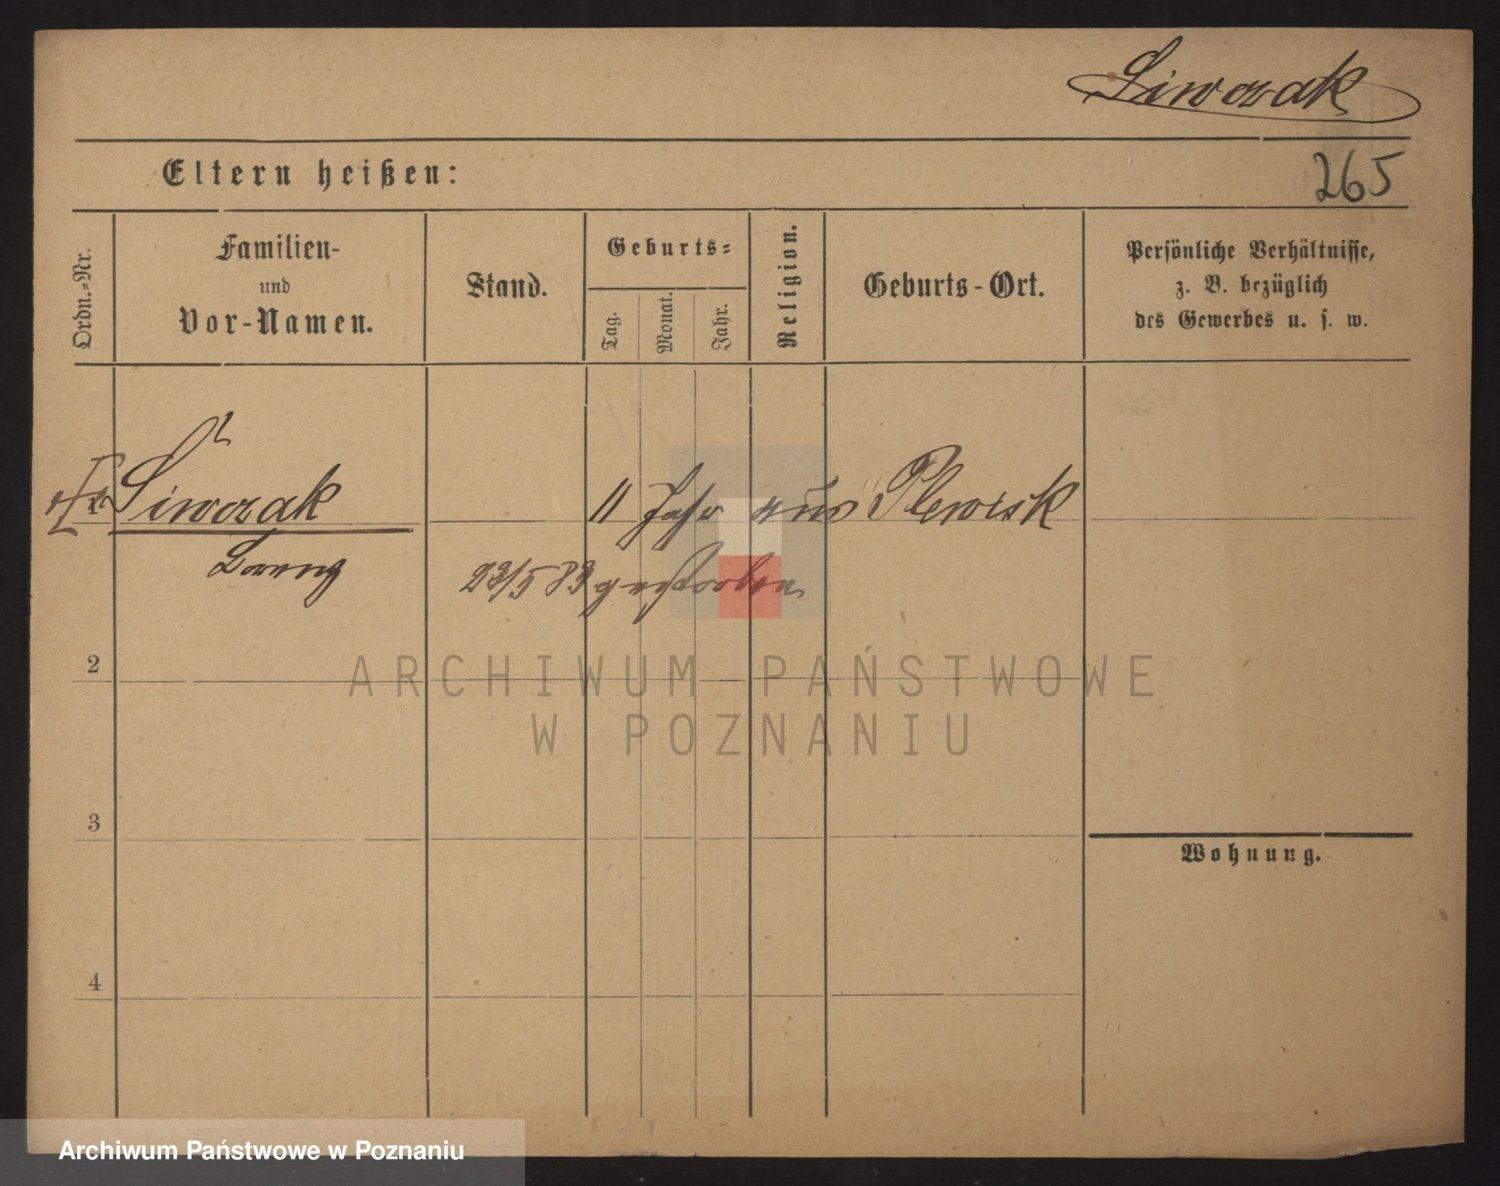 Siwczak
Eltern heißen:
265
Ordn.-Nr.
Familien-
und
Vor-Namen.
Stand.
Geburts-
Tag.
Monat.
Jahr.
Religion.
Geburts-Ort.
Persönliche Verhältnisse,
z. B. bezüglich
des Gewerbes u. s. w.
1
Siwczak
11 Jahr aus Plewisk
Lorenz
23/5 83 gestorben
2
ARCHIWUM PAŃSTWOWE
W POZNANIU
3
Wohnung.
4
Archiwum Państwowe w Poznaniu